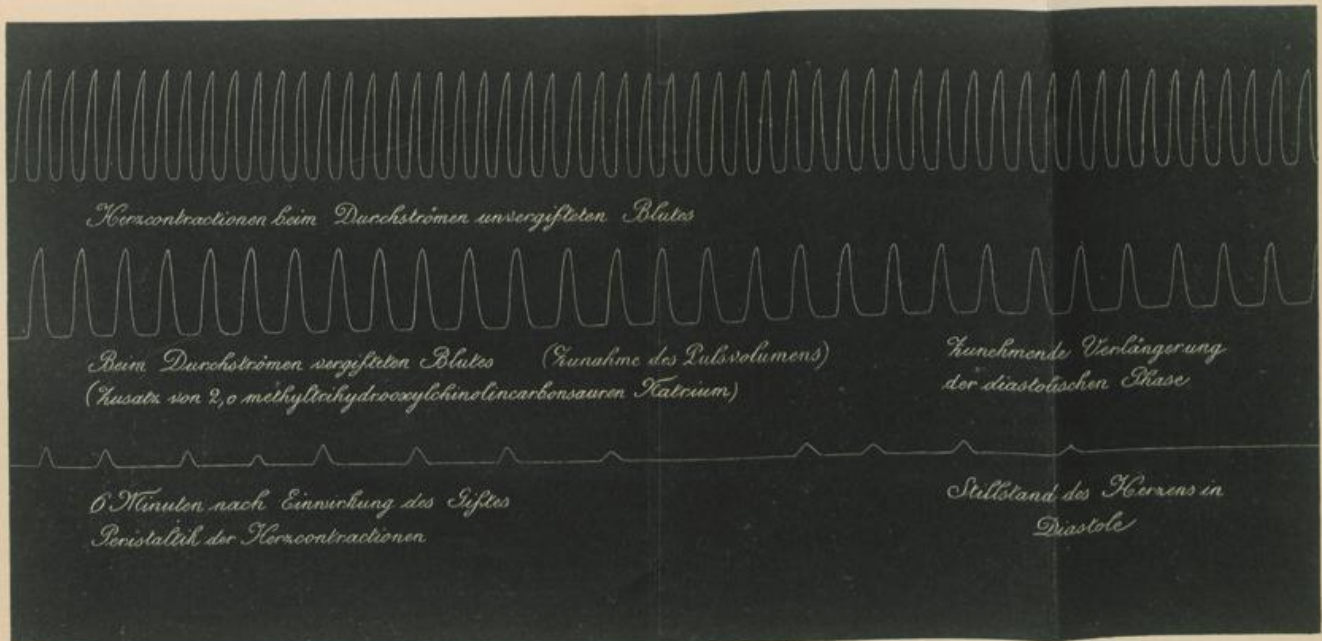 Herzcontractionen beim Durchströmen unvergifteten Blutes
Beim Durchströmen vergifteten Blutes (Zunahme des Pulsvolumens)
(Zusatz von 2,0 methyltrihydrooxylchinolincarbonsauren Natrium)
Zunehmende Verlängerung
der diastolischen Phase
6 Minuten nach Einwirkung des Giftes
Peristaltik der Herzcontractionen
Stillstand des Herzens in
Diastole